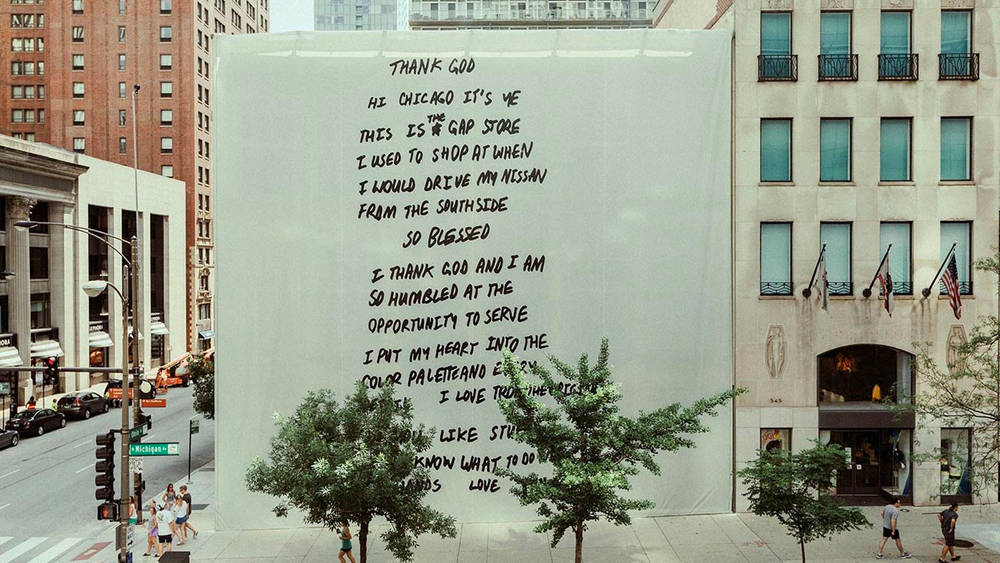 THANK GOD
HI CHICAGO IT'S YE
THIS IS THE GAP STORE
I USED TO SHOP AT WHEN
I WOULD DRIVE MY NISSAN
FROM THE SOUTHSIDE
SO BLESSED
I THANK GOD AND I AM
SO HUMBLED AT THE
OPPORTUNITY TO SERVE
I PUT MY HEART INTO THE
COLOR PALETTE AND
I LOVE TRON THE
LIKE
KNOW WHAT TO DO
LOVE
Michigan